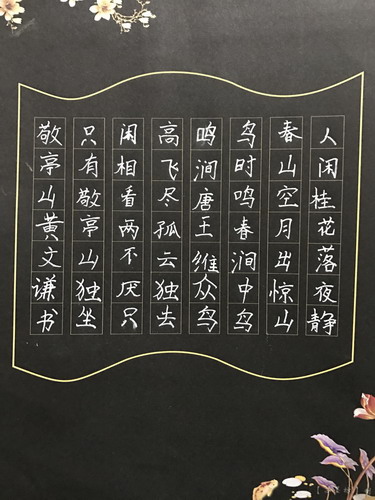 人闲桂花落夜静
春山空月出惊山
鸟时鸣春涧中鸟
鸣涧唐王维众鸟
高飞尽孤云独去
闲相看两不厌只
只有敬亭山独坐
敬亭山黄文谦书